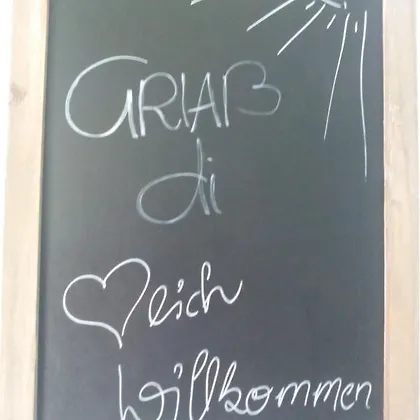 GRIAß
di
♡lich
Willkommen